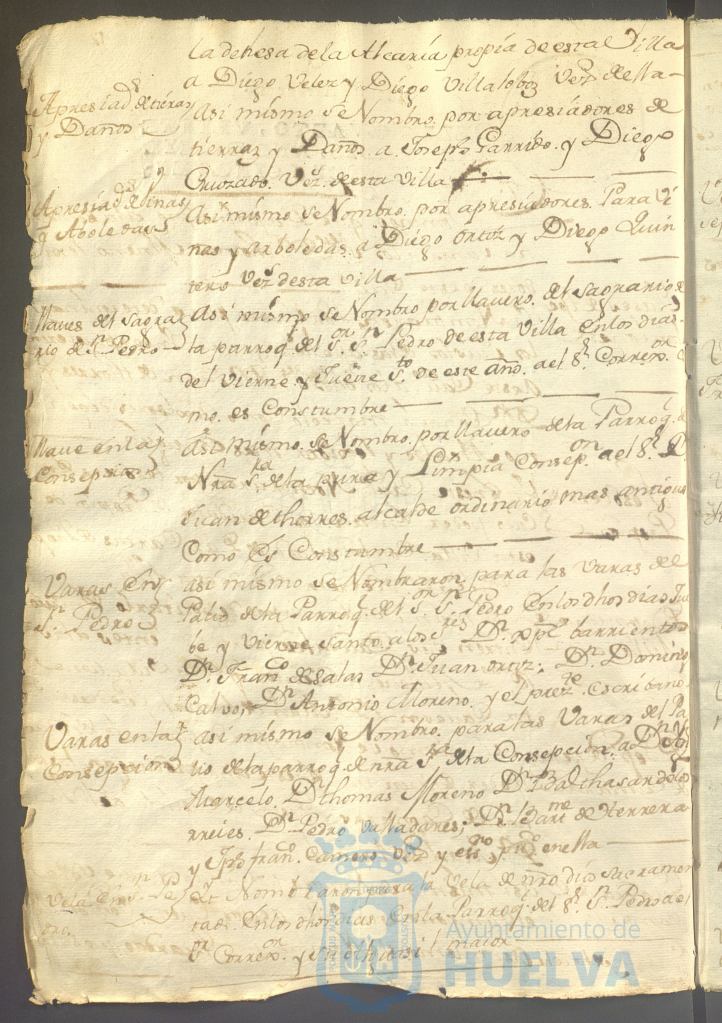 la dehesa de la Alcaria propia de esta Villa
a Diego Velez y Diego Villalobos vez.s de ella
Apresiad.s de tierras
y Daños
Asi mismo se Nombro. por apresiadores de
tierras y Daños a Joseph Garrido. y Diego
Cruzado. Vez.s de esta Villa
Apresiad.s de Vinas
y Aboledas
Asi mismo se Nombro. por apresiadores. Para Vi
nas y arboledas. a Diego Ortiz y Diego Quin
tero Vez.s desta Villa
llaves del Sagra
rio de S.n Pedro
Asi mismo se Nombro por llavero. del sagrario de
la parroq.l del S.or S.n Pedro de esta Villa en los dias
del Vierne y Jueve S.to de este año. a el S.r Correx.or
mo. es Constumbre
llave en la
Consepsion
Asi mismo. se Nombro. por llavero de la Parroq.l de
Nra S.ra de la pura y Limpia Consep.on a el S.r D.n
Juan de thorres. alcalde ordinario mas antiguo
Como Es Constumbre
Varas en
S.n Pedro
asi mismo se Nombraron. para las Varas del
Palio de la Parroq.l del S.or S.n Pedro En los dhos dias Jue
be y Vierne Santo. a los S.res D.n xptl barrientos
D.n Fran.co de Salas D.n Juan ortiz; D.n Domingo
Calvo, D.n Antonio Moreno. y el prez.te escribano.
Varas en la
Consepcion
asi mismo se Nombro. para las Varas del Pa
lio de la parroq.l de nra S.ra de la Consepcion. a D.n
Marcelo. D.n thomas Moreno D.n Balthasar de
arreies. D.n Pedro Valladares; D.n Bar.me de Herrera
y Jph fran.co Camero. Vez.s y en ella
Vela en S.n Pe
dro.
Et Nombraron para la Vela de nro dios sacramen
tado. En los dhos dias En la Parroq.l del S.r S.n Pedro a el
S.r Correx.or y su maior
Ayuntamiento de
HUELVA